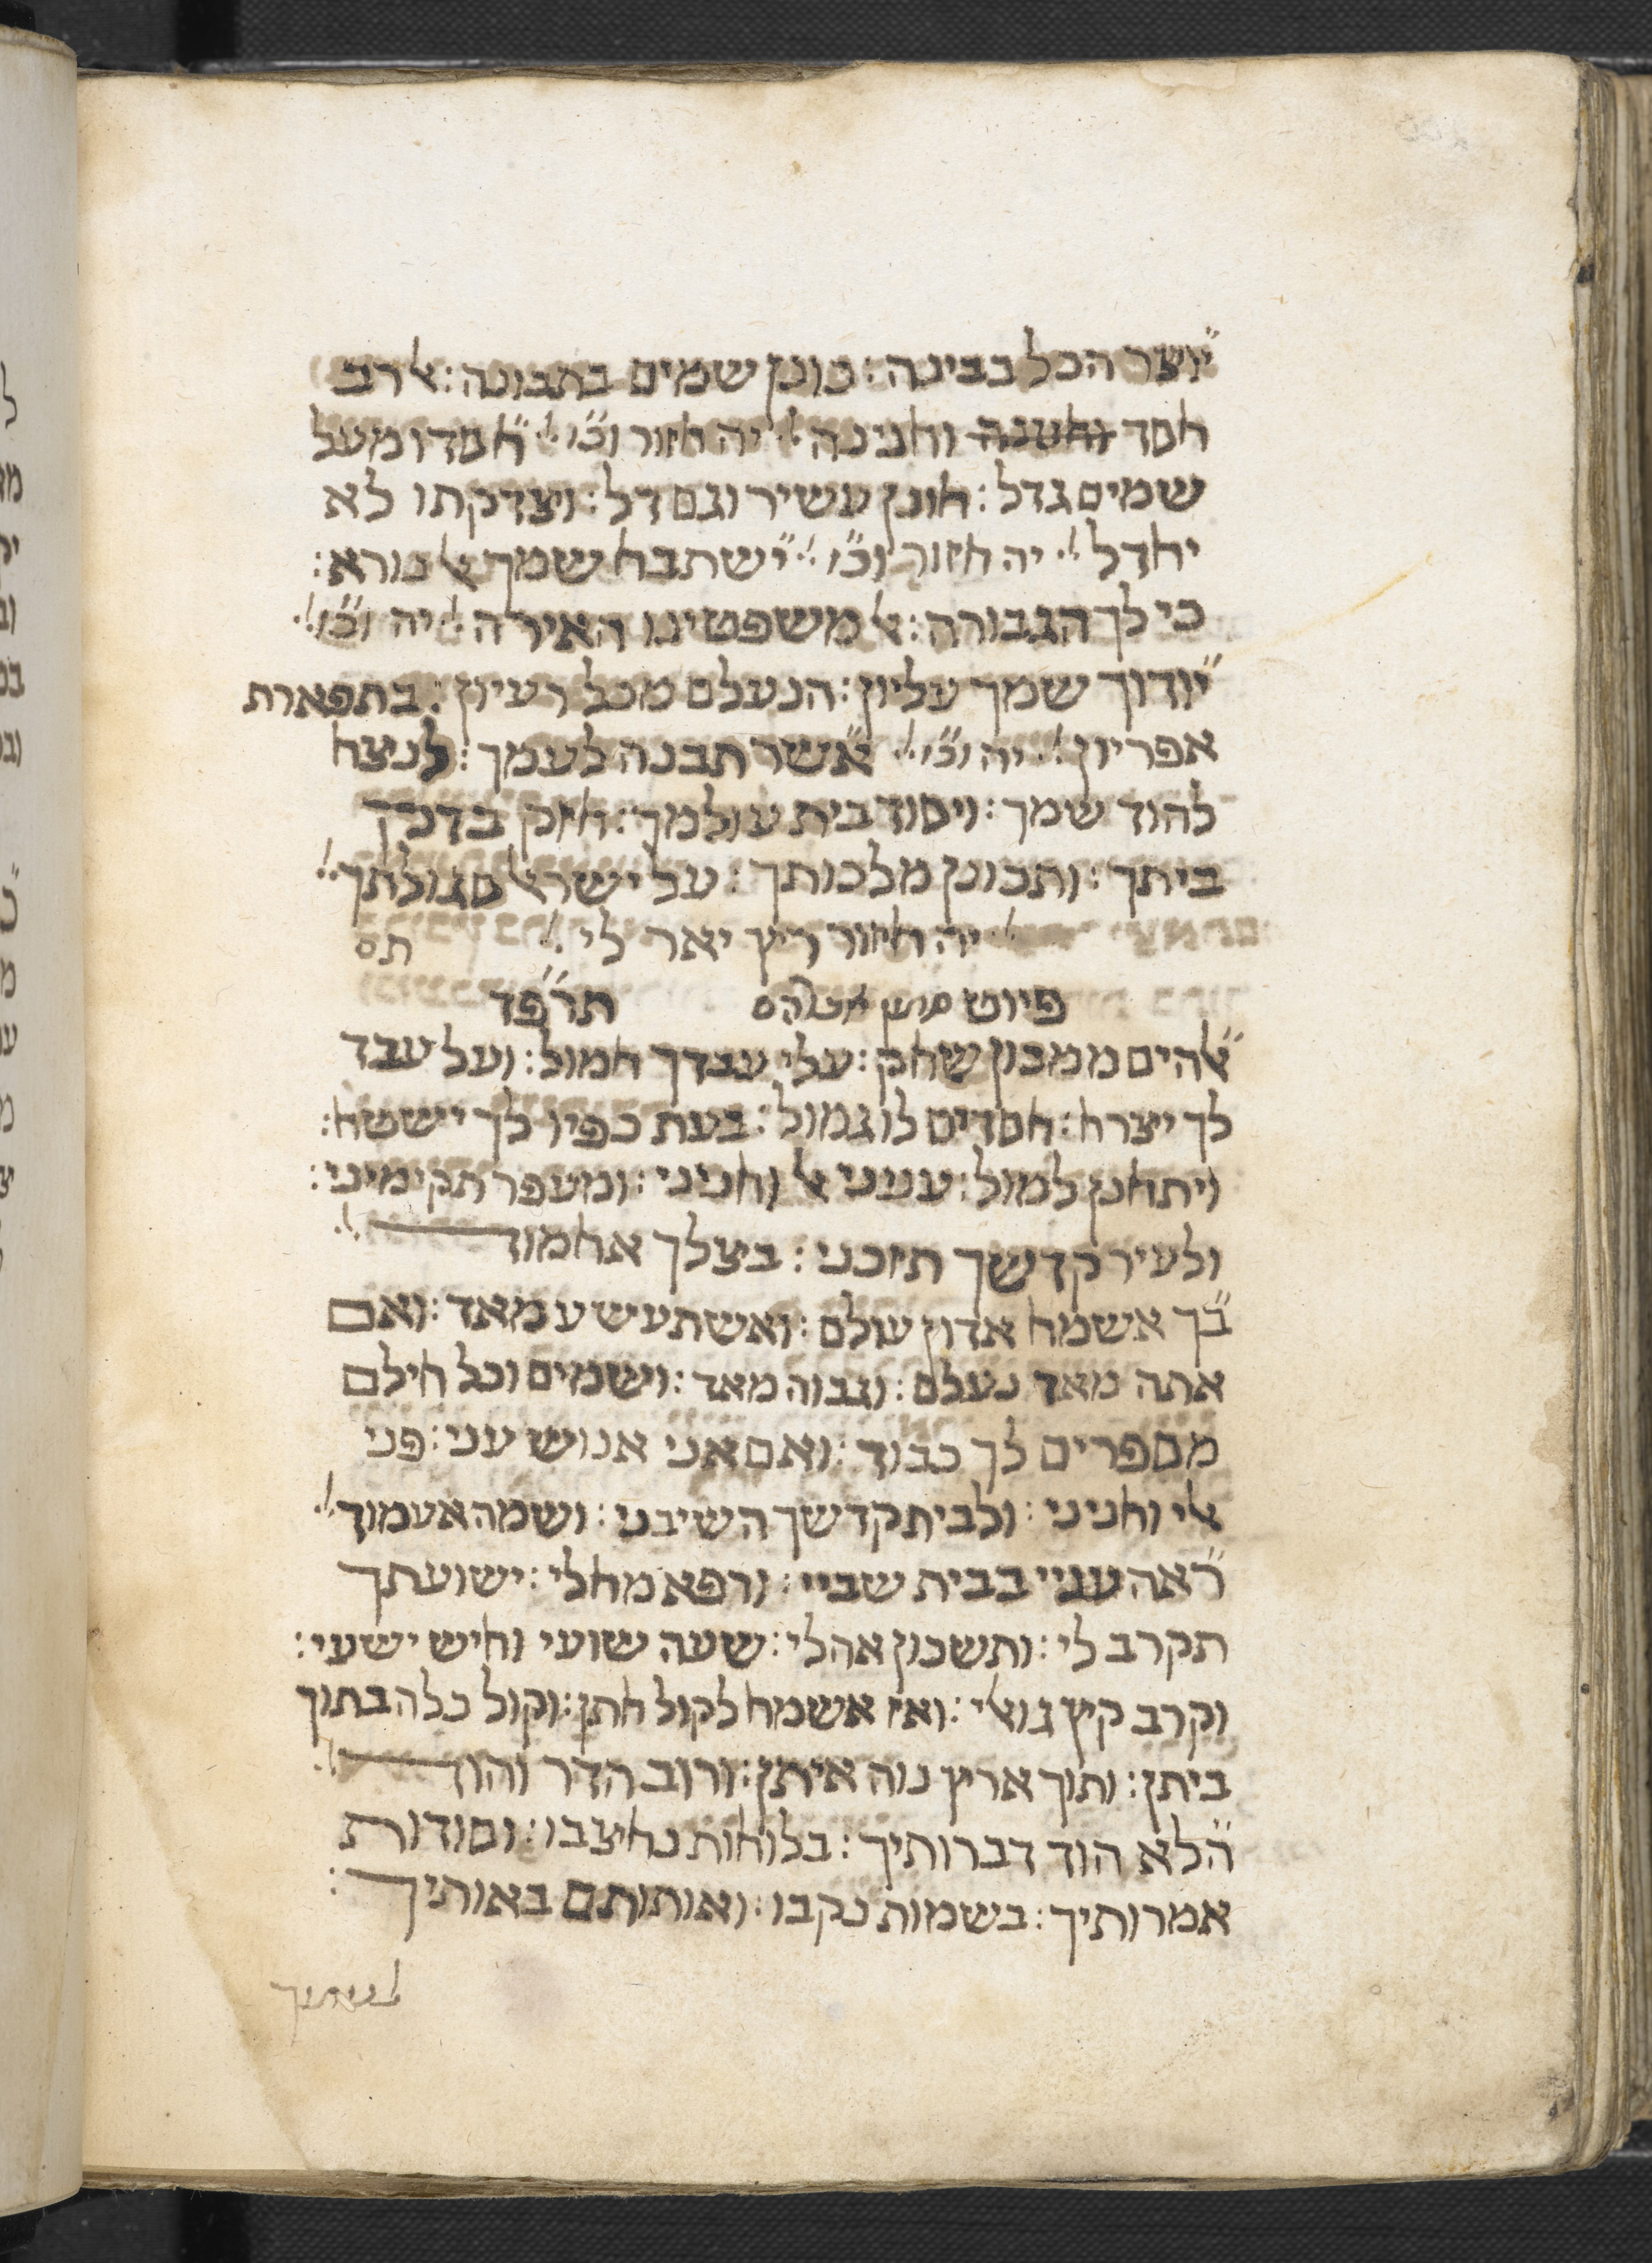 יוצר הכל בבינה : כונן שמים בתבונה : אל רב
חסד וחנינה : יה חזור וכ״ו : חסדו מעל
שמים גדל : חונן עשיר וגם דל : וצדקתו לא
יחדל : יה חזור וכ״ו : ישתבח שמך אל נורא :
כי לך הגבורה : אל משפטינו האירה : יה וכ״ו :
יודוך שמך עליון : הנעלם מכל רעיון : בתפארת
אפריון : יה וכ״ו : אשר תבנה לעמך : לנצח
להוד שמך : ויסוד בית עולמך : חזק בדק
ביתך : ותכונן מלכותך : על ישראל סגולתך :
יה חזור ריץ יאר לי : תם
פיוט סימן אברהם תר״פד
אלהים ממכון שחק : עלי עבדך חמול : ועל עבד
לך יצרח : חסדים לו גמול : בעת כפיו לך ישטח :
ויתחנן למול : ענני אל וחניני : ומעפר תקימיני :
ולעיר קדשך תזכני : בצלך אחמוד :
בך אשמח אדון עולם : ואשתעשע מאד : ואם
אתה מאד נעלם : וגבוה מאד : ושמים וכל חילם
מספרים לך כבוד : ואם אני אנוש עני : פני
אלי וחניני : ולבית קדשך השיבני : ושמה אעמוד :
ראה עניי בבית שביי : ורפא מחלי : ישועתך
תקרב לי : ותשכון אהלי : שעה שועי וחיש ישעי :
וקרב קיץ גואלי : ואז אשמח לקול חתן : וקול כלה בתוך
ביתן : ותוך ארץ נוה איתן : ורוב הדר והוד :
הלא הוד דברותיך : בלוחות נחצבו : וסודות
אמרותיך : בשמות נקבו : ואותותם באותיך :